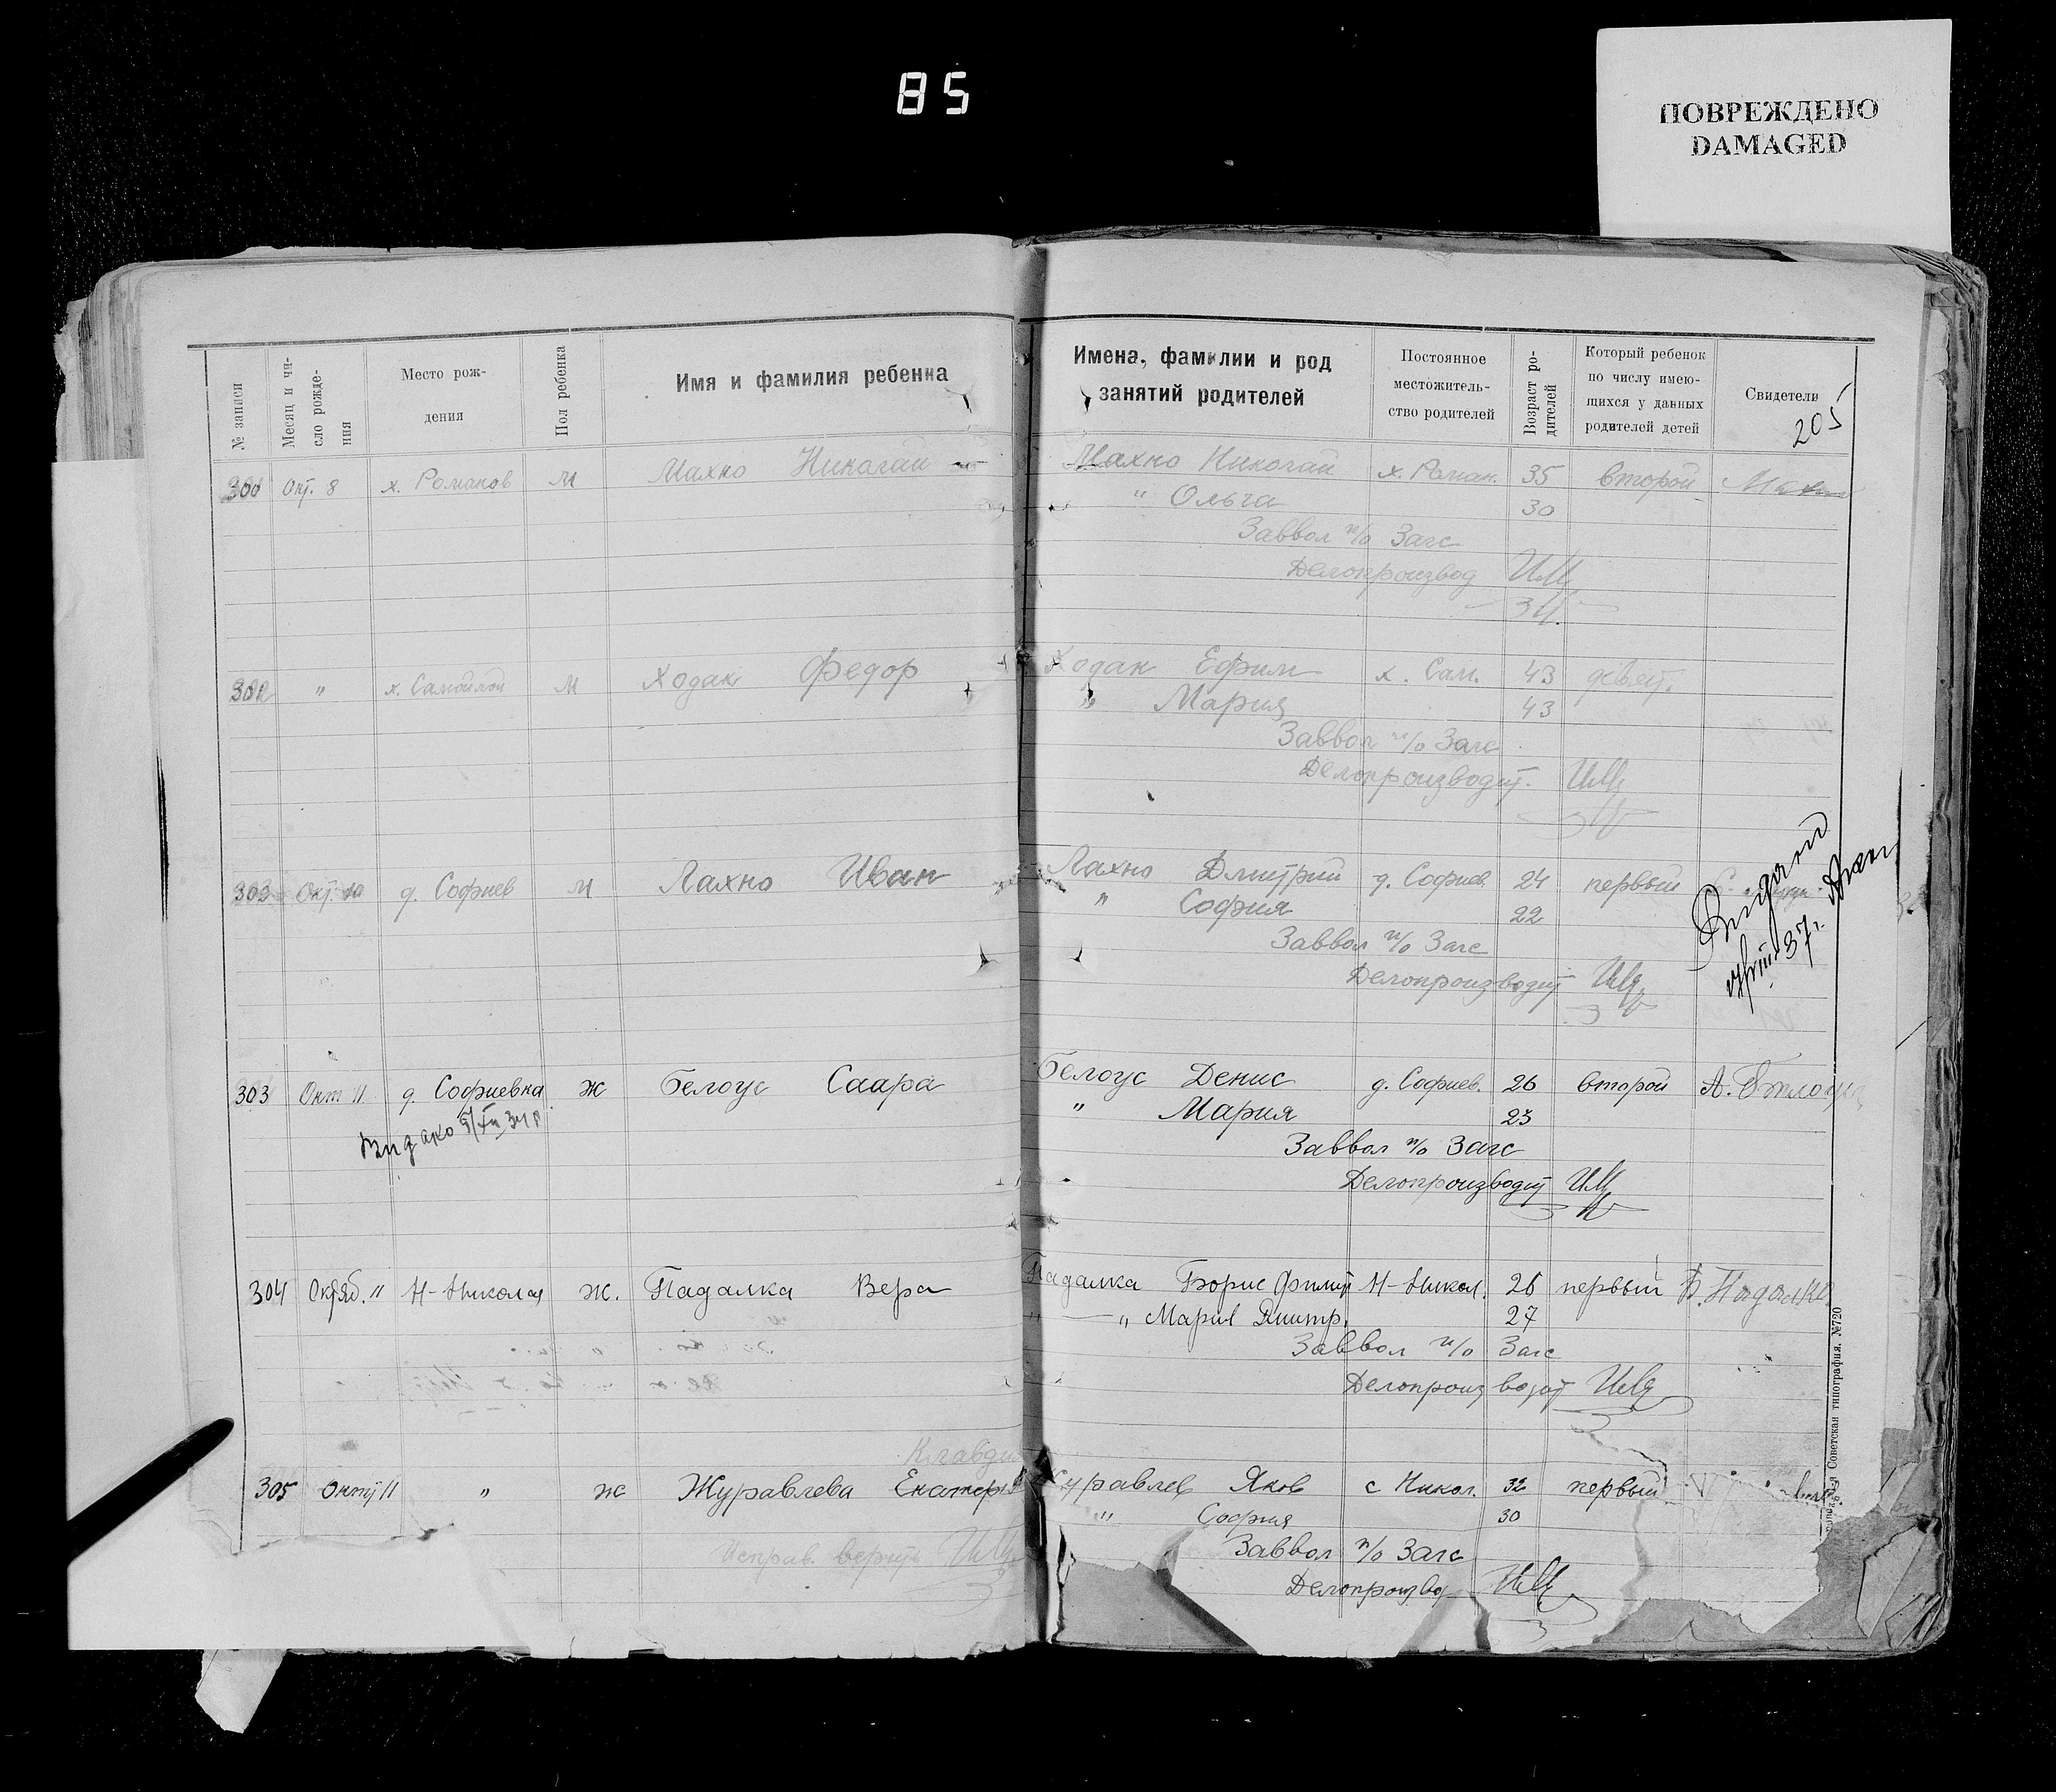 85
ПОВРЕЖДЕНО
DAMAGED
№ записи
Месяц и чи-
сло рожде-
ния
Место рож-
дения
Пол ребенка
Имя и фамилия ребенка
Имена, фамилии и род
занятий родителей
Постоянное
местожитель-
ство родителей
Возраст ро-
дителей
Который ребенок
по числу имею-
щихся у данных
родителей детей
Свидетели
205
300 Окт. 8 х. Романов м Махно Николай Махно Николай х. Роман. 35 второй Махно
" Ольга 30
Заввол п/о Загс
Делопроизвод
" х. Самойлов м Ходак Федор Ходак Ефим х. Сам. 43 девят.
" Мария 43
Заввол п/о Загс
Делопроизводит.
302 Окт. 10 д. Софиев м Лахно Иван Лахно Дмитрий д. Софиев. 24 первый
" София 22
Заввол п/о Загс
Делопроизводит
Видано
37г.
303 Окт 11 д. Софиевка ж Белоус Саара Белоус Денис д. Софиев. 26 второй А. Белоус
Видано 5/XII 34 р
" Мария 23
Заввол п/о Загс
Делопроизводит
304 Октяб. " Н-Николая ж. Падалка Вера Падалка Борис Филип Н-Никол. 26 первый Б. Падалка
" Мария Дмитр. 27
Заввол п/о Загс
Делопроизводит
Клавдия
305 Окт 11 " ж Журавлева Екатер Журавлев Яков с Никол. 32 первый
" София 30
Исправ. верить
Заввол п/о Загс
Делопроизвод
Советская типография. №720